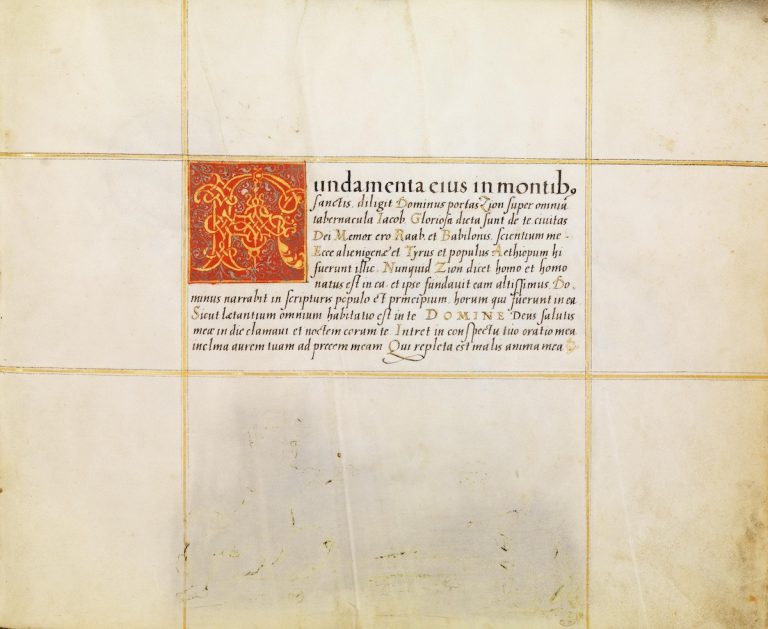 Fundamenta eius in montib9
sanctis. diligit Dominus portas Zion super omniā
tabernacula Iacob. Gloriosa dicta sunt de te civitas
Dei Memor ero Raab. et Babilonis. scientium me.
Ecce alienigenæ et Tyrus et populus Aethiopum hi
fuerunt illic. Nunquid Zion dicet homo et homo
natus est in ea. et ipse fundauit eam altissimus. Do-
minus narrabit in scripturis populo et principium. horum qui fuerunt in ea
Sicut lætantium omnium habitatio est in te DOMINE Deus salutis
meæ in die clamaui et noctem coram te Intret in conspectu tuo oratio mea
inclina aurem tuam ad precem meam Qui repleta est malis anima mea